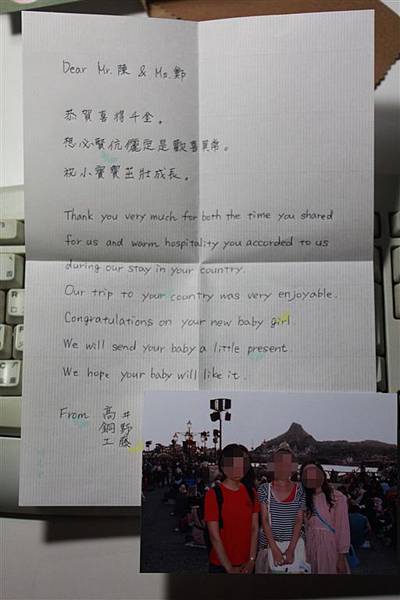 Dear Mr.陳 & Ms.鄭
恭賀喜得千金。
想必賢伉儷定是歡喜異常。
祝小寶寶茁壯成長。
Thank you very much for both the time you shared
for us and warm hospitality you accorded to us
during our stay in your country.
Our trip to your country was very enjoyable.
Congratulations on your new baby girl.
We will send your baby a little present.
We hope your baby will like it.
From 高井
銅野
工藤